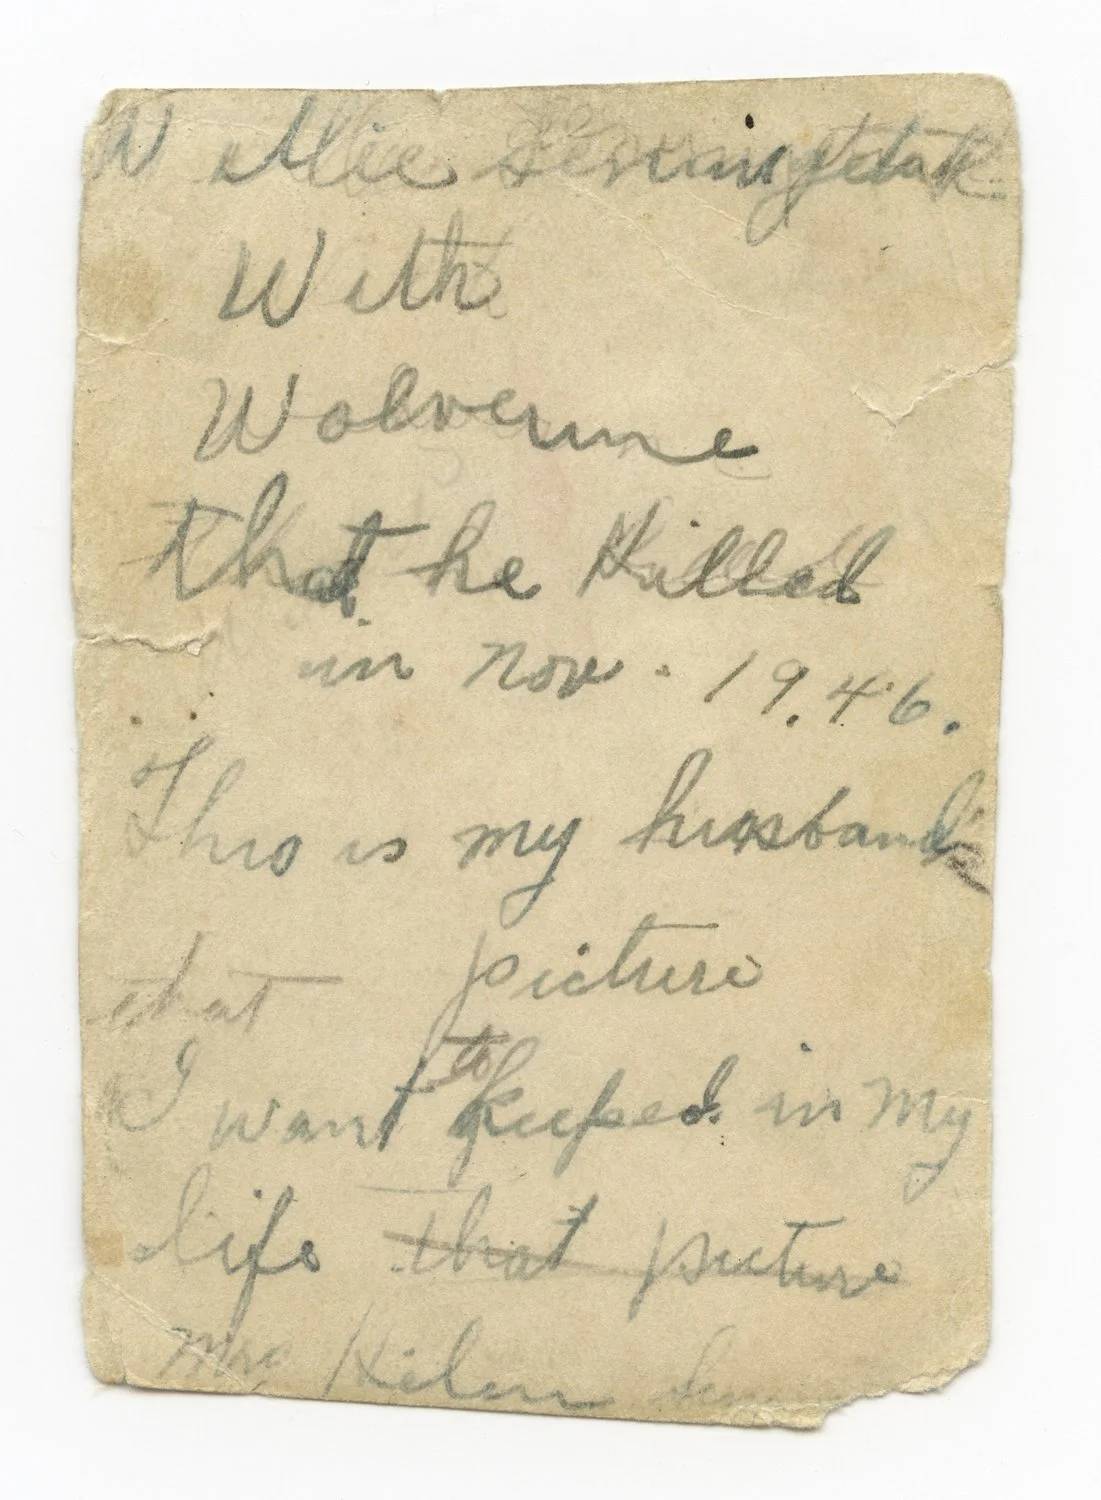 Willie
With
Wolverine
that he Killed
in Nov. 19.46.
This is my husband
that picture
I want to keeped in my
life that picture
Mrs Helen